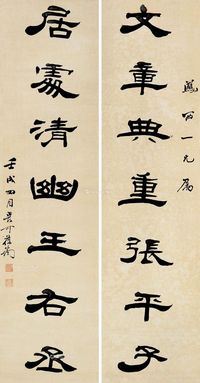 一兄屬
文章典重張平子
居處清幽王右丞
壬戌四月